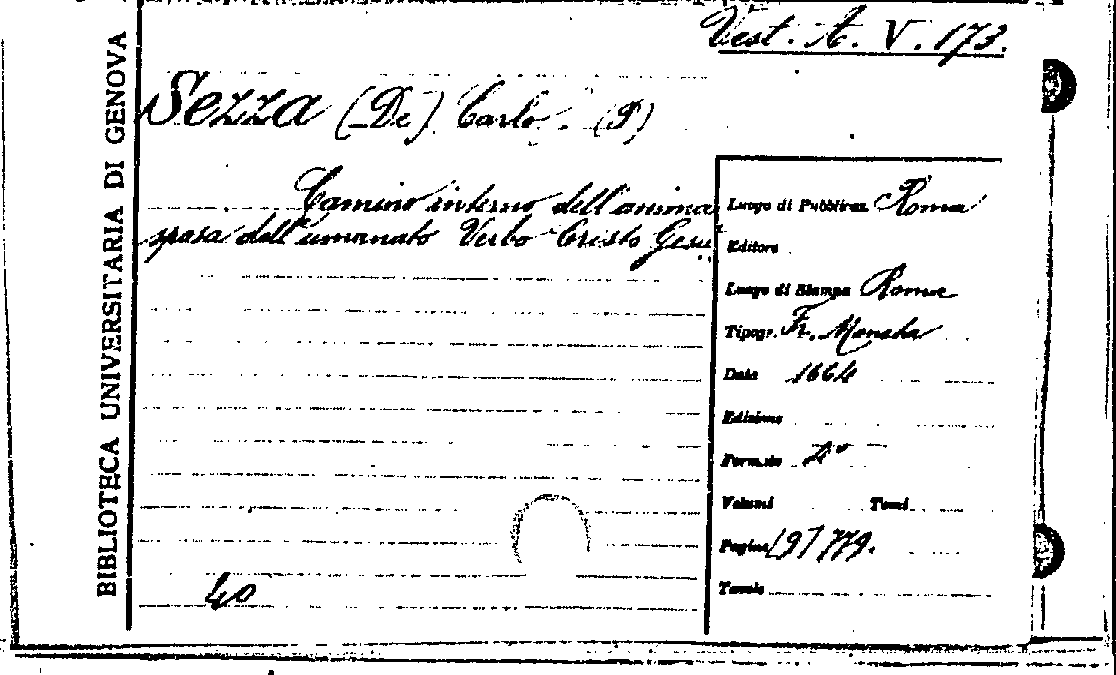 Vest. A. V. 173.
BIBLIOTECA UNIVERSITARIA DI GENOVA
Sezza (De) Carlo. (P)
Camino interno dell'anima
sposa dell'umanato Verbo Cristo Gesù.
40
Luogo di Pubblicaz. Roma
Editore
Luogo di Stampa Roma
Tipogr. Fr. Moneta
Data 1664
Edizione
Formato 4°
Volumi Tomi
Pagine (9) 779.
Tavole